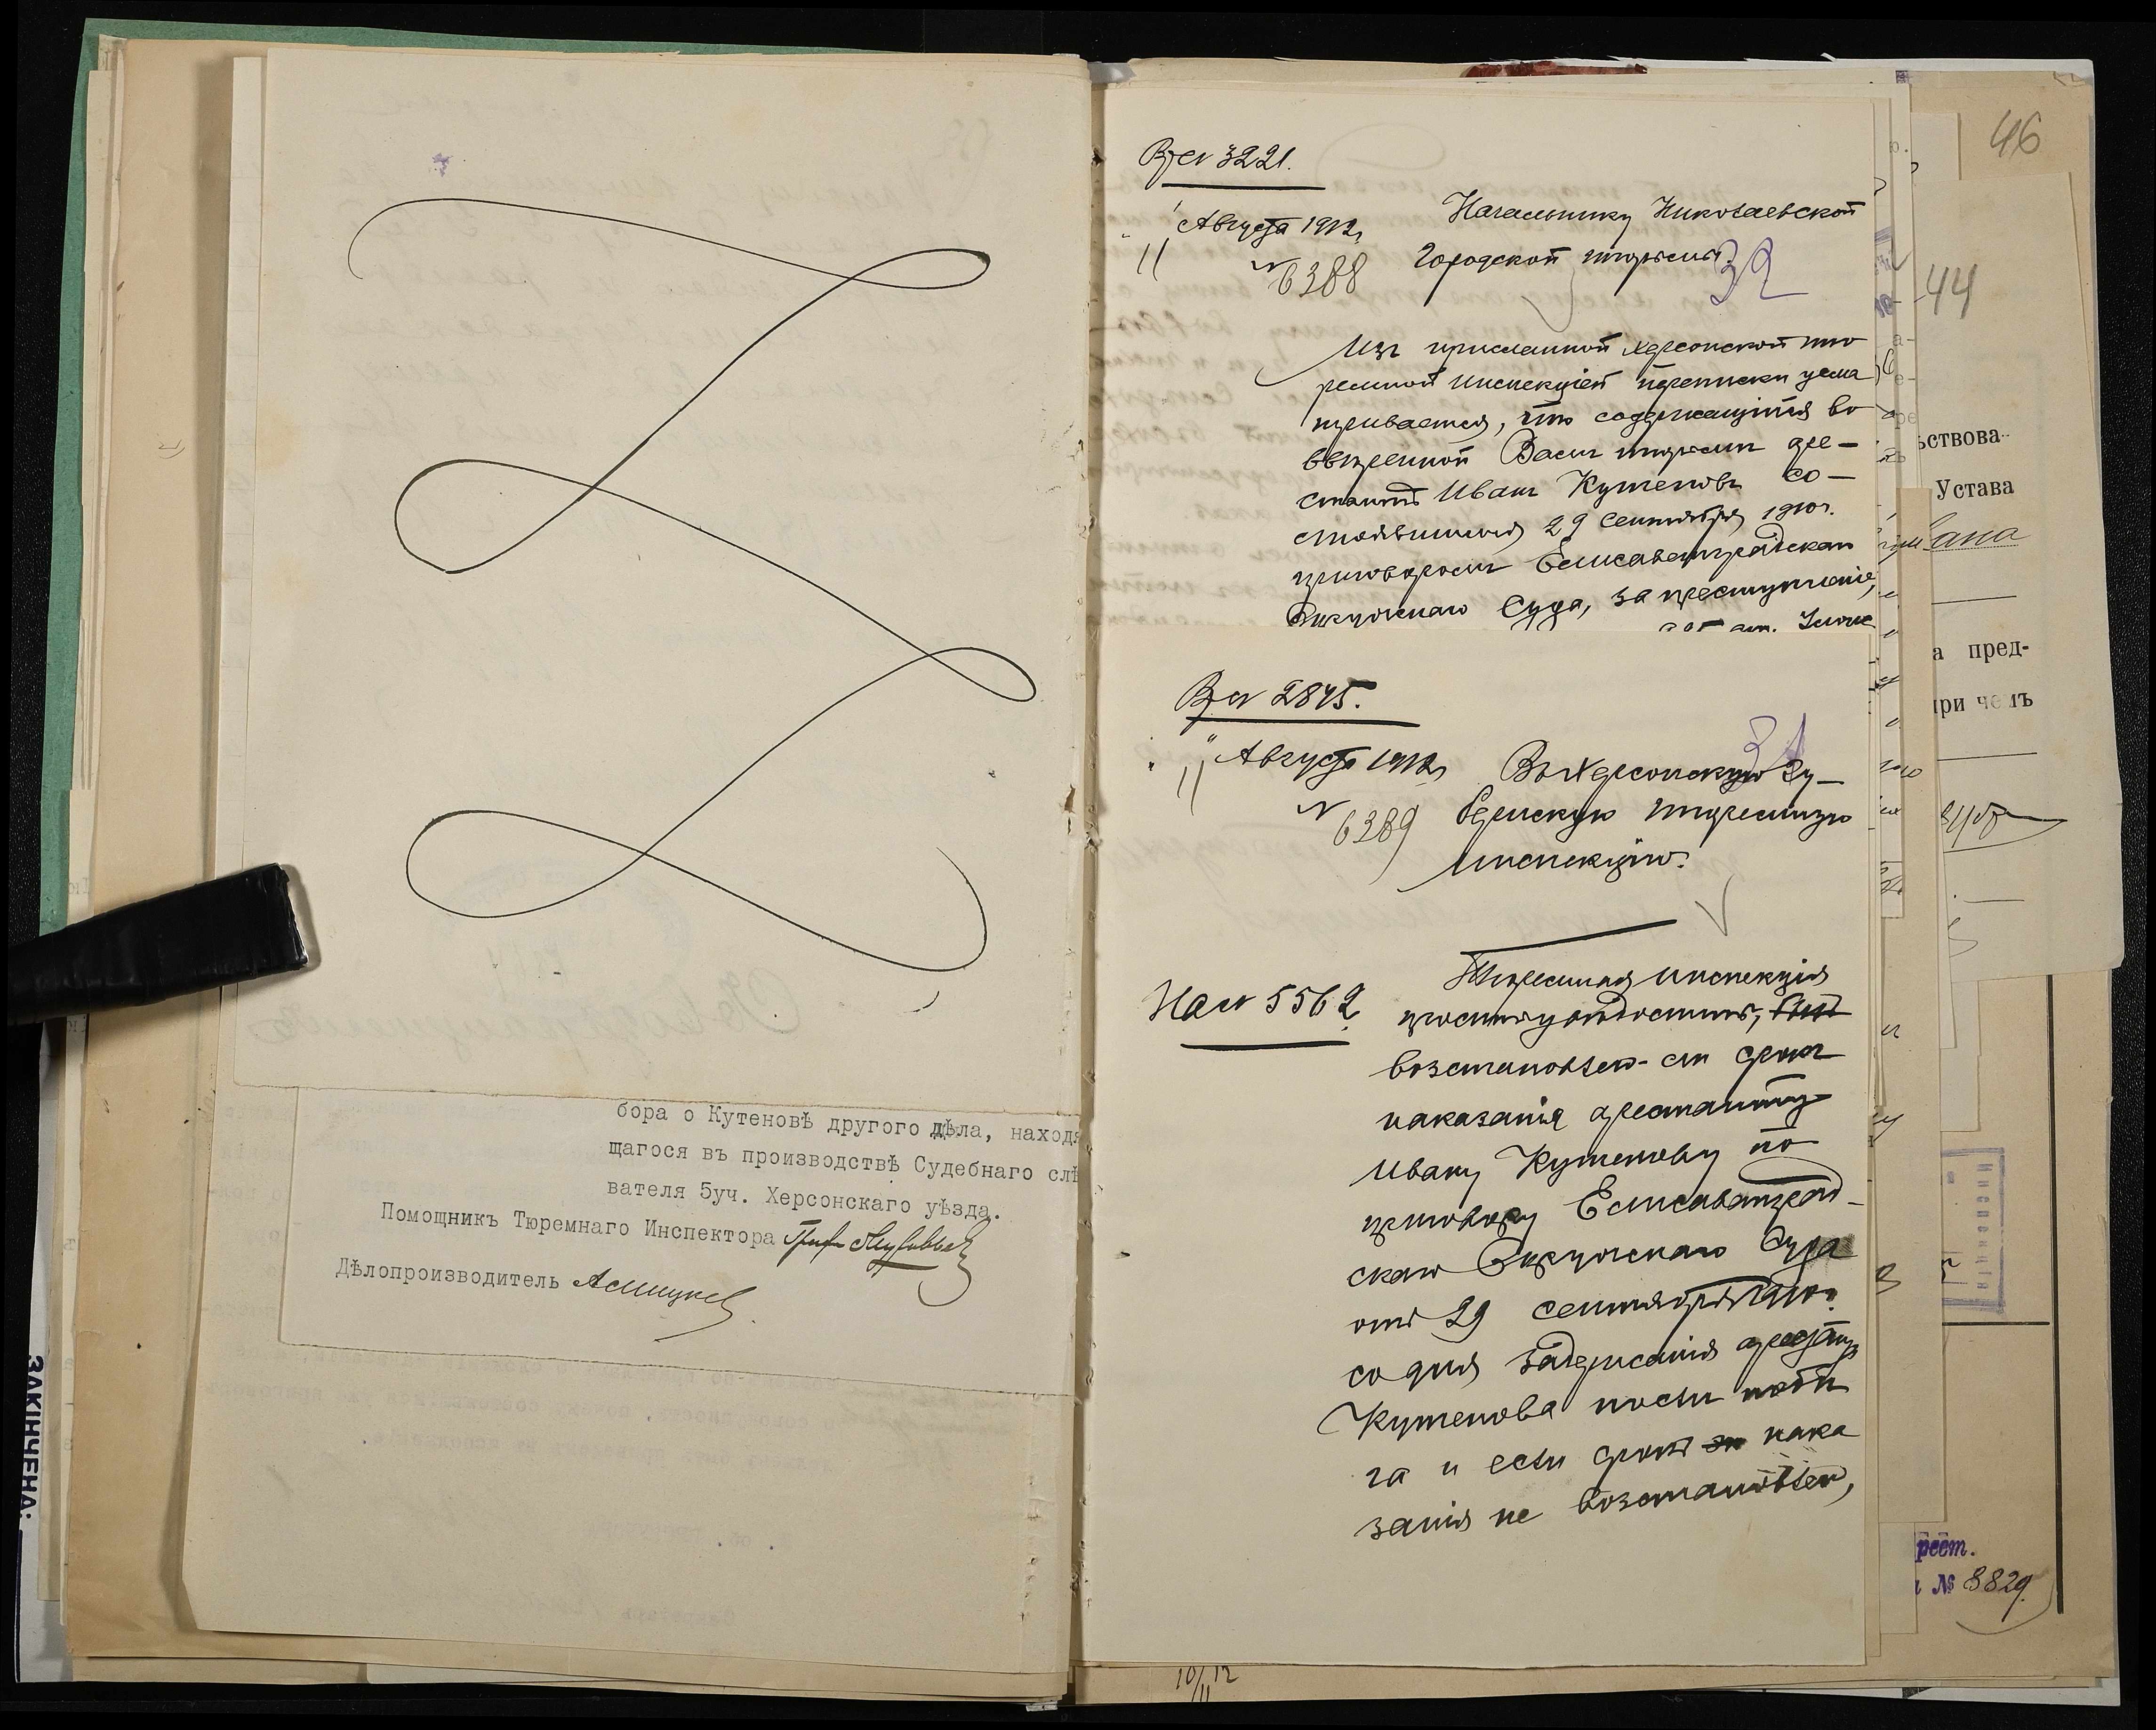 бора о Кутеновѣ другого дѣла, находя
щагося въ производствѣ Судебнаго слѣ
вателя 5уч. Херсонскаго уѣзда.
Помощникъ Тюремнаго Инспектора
Дѣлопроизводитель
Вх № 3221.
" Августа 1912 г.
11
№ 6388
Начальнику Николаевской
Городской тюрьмы
32
Изъ присланной Херсонской тю
ремной инспекціей переписки усма
тривается, что содержащійся во
ввѣренной Вамъ тюрьмѣ аре-
стантъ Иванъ Кутеновъ со-
стоявшимся 29 Сентября 1910 г.
приговоромъ Елисаветградскаго
Окружнаго Суда, за преступленіе,
Вх № 2845.
" Августа 1912 г.
11
№ 6389
31
Въ Херсонскую Гу-
бернскую тюремную
инспекцію.
На № 5562
Тюремная инспекція
проситъ увѣдомить,
возстановленъ-ли срокъ
наказанія арестанту
Ивану Кутенову по
приговору Елисаветград-
скаго Окружнаго Суда
отъ 29 сентября 1910 г.
со дня задержанія
Кутенова послѣ побѣ
га и если срокъ нака
занія не возстановленъ,
46
44
ьствова-
Устава
ана
а пред-
при чемъ
Инспекція
рест.
№ 8829
10/11 12
ЗАКІНЧЕНА: